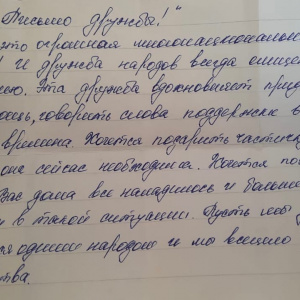 Письмо дружбы!"
это огромная многонациональн
! И дружба народов всегда ощущ
ею. Эта дружба вдохновляет прид
ощь, говорить слова поддержки в
времена. Хочется подарить частич
оне сейчас необходима. Хочется по
Вас дома все наладилось и больше
и в такой ситуации. Пусть
ся одним народом и мы всецело
ства.